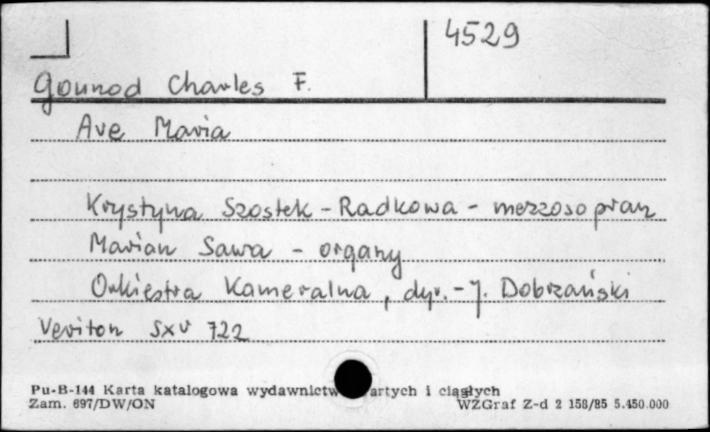 4529
Gounod Charles F.
Ave Maria
Krystyna Szostek-Radkowa - mezzosopran
Marian Sawa - organy
Orkiestra Kameralna, dyr. - J. Dobrzański
Veriton SXV 722
Pu-B-144 Karta katalogowa wydawnictw artych i ciągłych
Zam. 697/DW/ON WZGraf Z-d 2 158/85 5.450.000